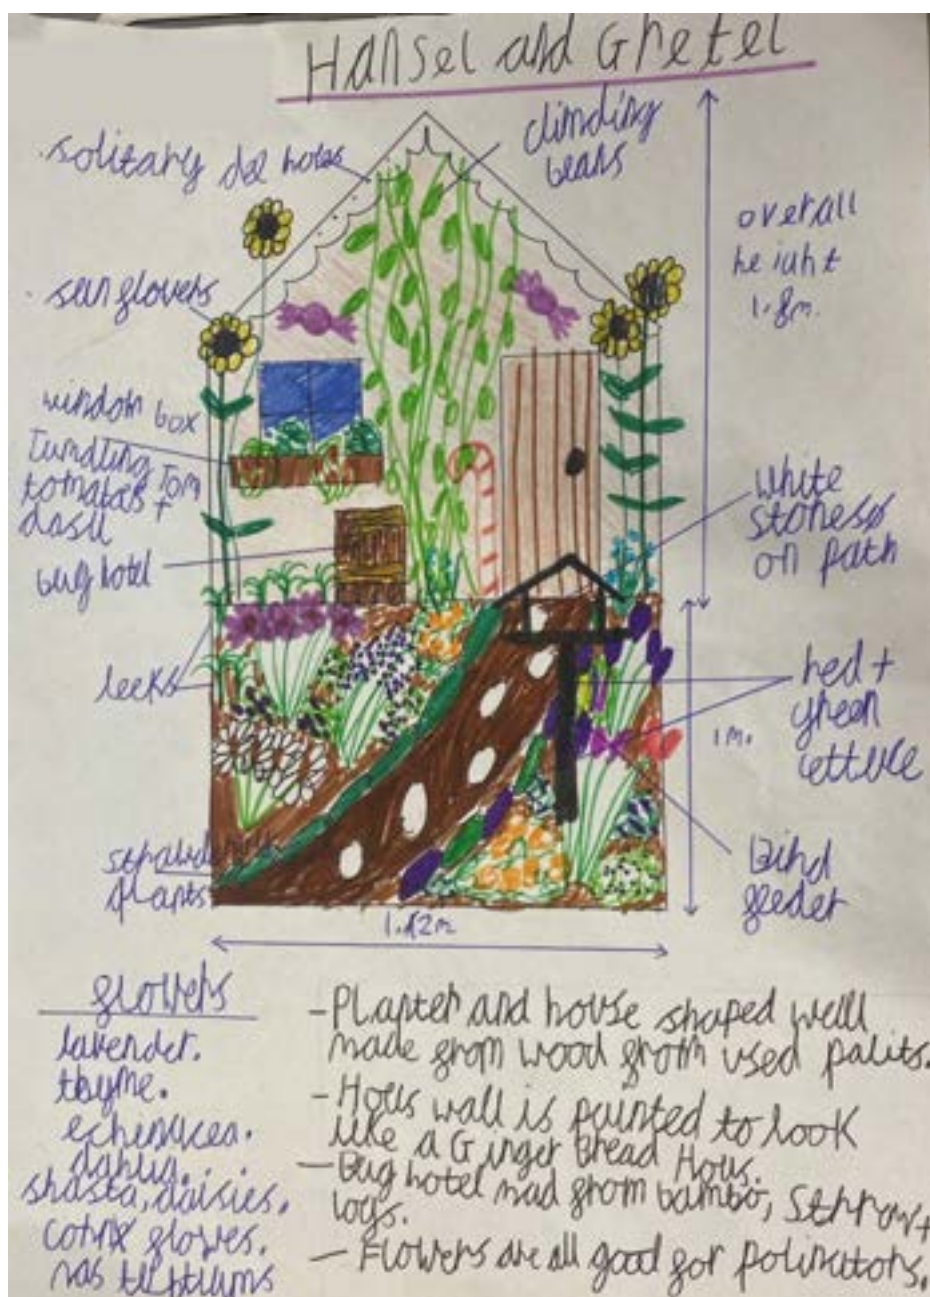 Hansel and Gretel
solitary bee holes
climbing
beans
overall
height
1.8m.
sun flowers
window box
Tumbling Tom
tomatoes +
basil
bug hotel
white
stones
on path
leeks
red +
green
lettuce
1m.
plants
Bird
feeder
1.12m
flowers
lavender.
thyme.
echinacea.
dahlia...
shasta, daisies.
corn flowers.
nas turtiums
- Planter and house shaped wall
made from wood from used palits.
- Hous wall is painted to look
like a Ginger Bread Hous.
- Bug hotel mad from bambo, Strraw +
logs.
- Flowers are all good for polinators.